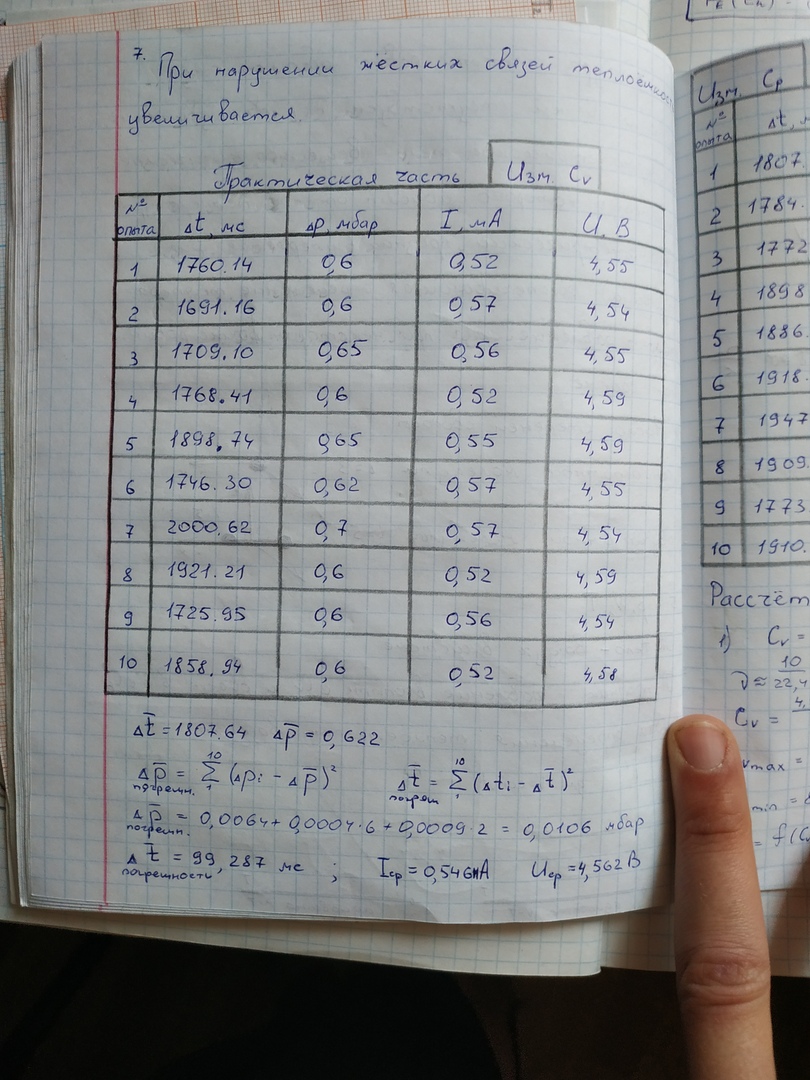 7. При нарушении жёстких связей теплоёмкость
увеличивается.
Практическая часть Изм. Cv
№ опыта Δt, мс Δp, мбар I, мА U, В
1 1760.14 0,6 0,52 4,55
2 1691.16 0,6 0,57 4,54
3 1709.10 0,65 0,56 4,55
4 1768.41 0,6 0,52 4,59
5 1898.74 0,65 0,55 4,59
6 1746.30 0,62 0,57 4,55
7 2000.62 0,7 0,57 4,54
8 1921.21 0,6 0,52 4,59
9 1725.95 0,6 0,56 4,54
10 1858.94 0,6 0,52 4,58
Δt̅ = 1807.64 Δp̅ = 0,622
Δp̅ погрешн. = 10 Σ 1 (Δpi - Δp̅)² Δt̅ погреш = 10 Σ 1 (Δti - Δt̅)²
Δp̅ погрешн. = 0,0064 + 0,0004·6 + 0,0009·2 = 0,0106 мбар
Δt̅ погрешности = 99,287 мс ; Iср = 0,546мА Uср = 4,562В
Изм. Cp
№ опыта Δt,
1 1807.
2 1784.
3 1772
4 1898
5 1886.
6 1918.
7 1947
8 1909.
9 1773
10 1910.
Рассчёт
1) Cv =
ν ≈ 10 / 22,4
Cv = 4,
max =
min =
= f(C